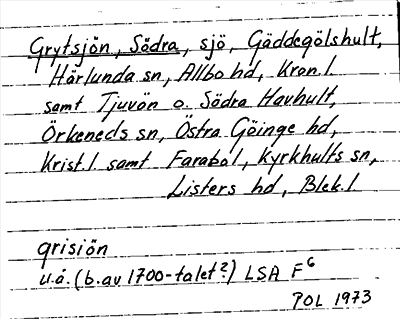 Grytsjön, Södra, sjö, Gäddegölshult,
Härlunda sn, Allbo hd, Kron.l.
samt Tjuvön o. Södra Havhult,
Örkeneds sn, Östra Göinge hd,
Krist.l. samt Farabol, Kyrkhults sn,
Listers hd, Blek.l.
grisiön
u.å. (b. av 1700-talet?) LSA F6
POL 1973